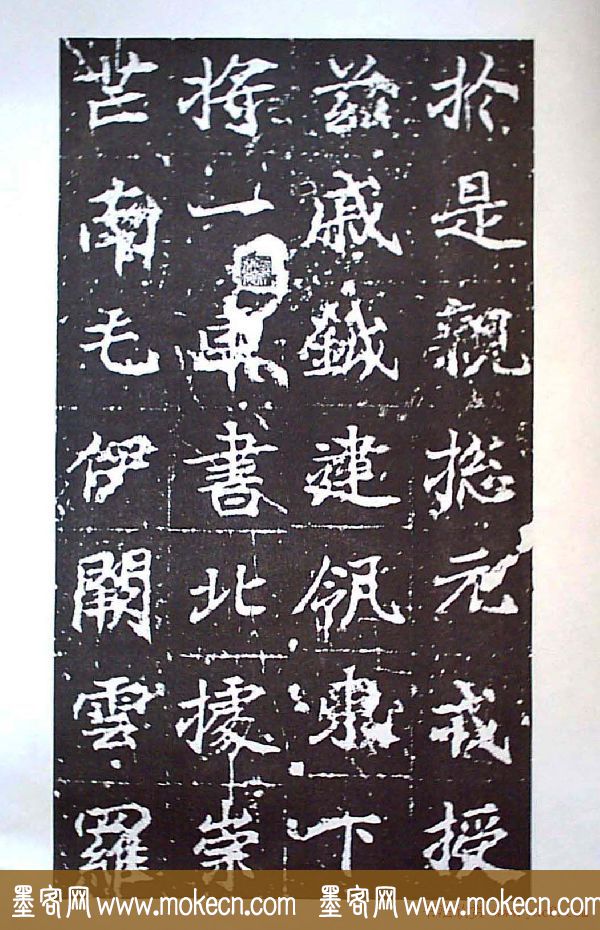 於是親揔元戎授
茲戚鉞建瓴東下
將一車書北據崇
芒南屯伊闕雲羅
墨客网 www.mokecn.com 墨客网 www.mokecn.com